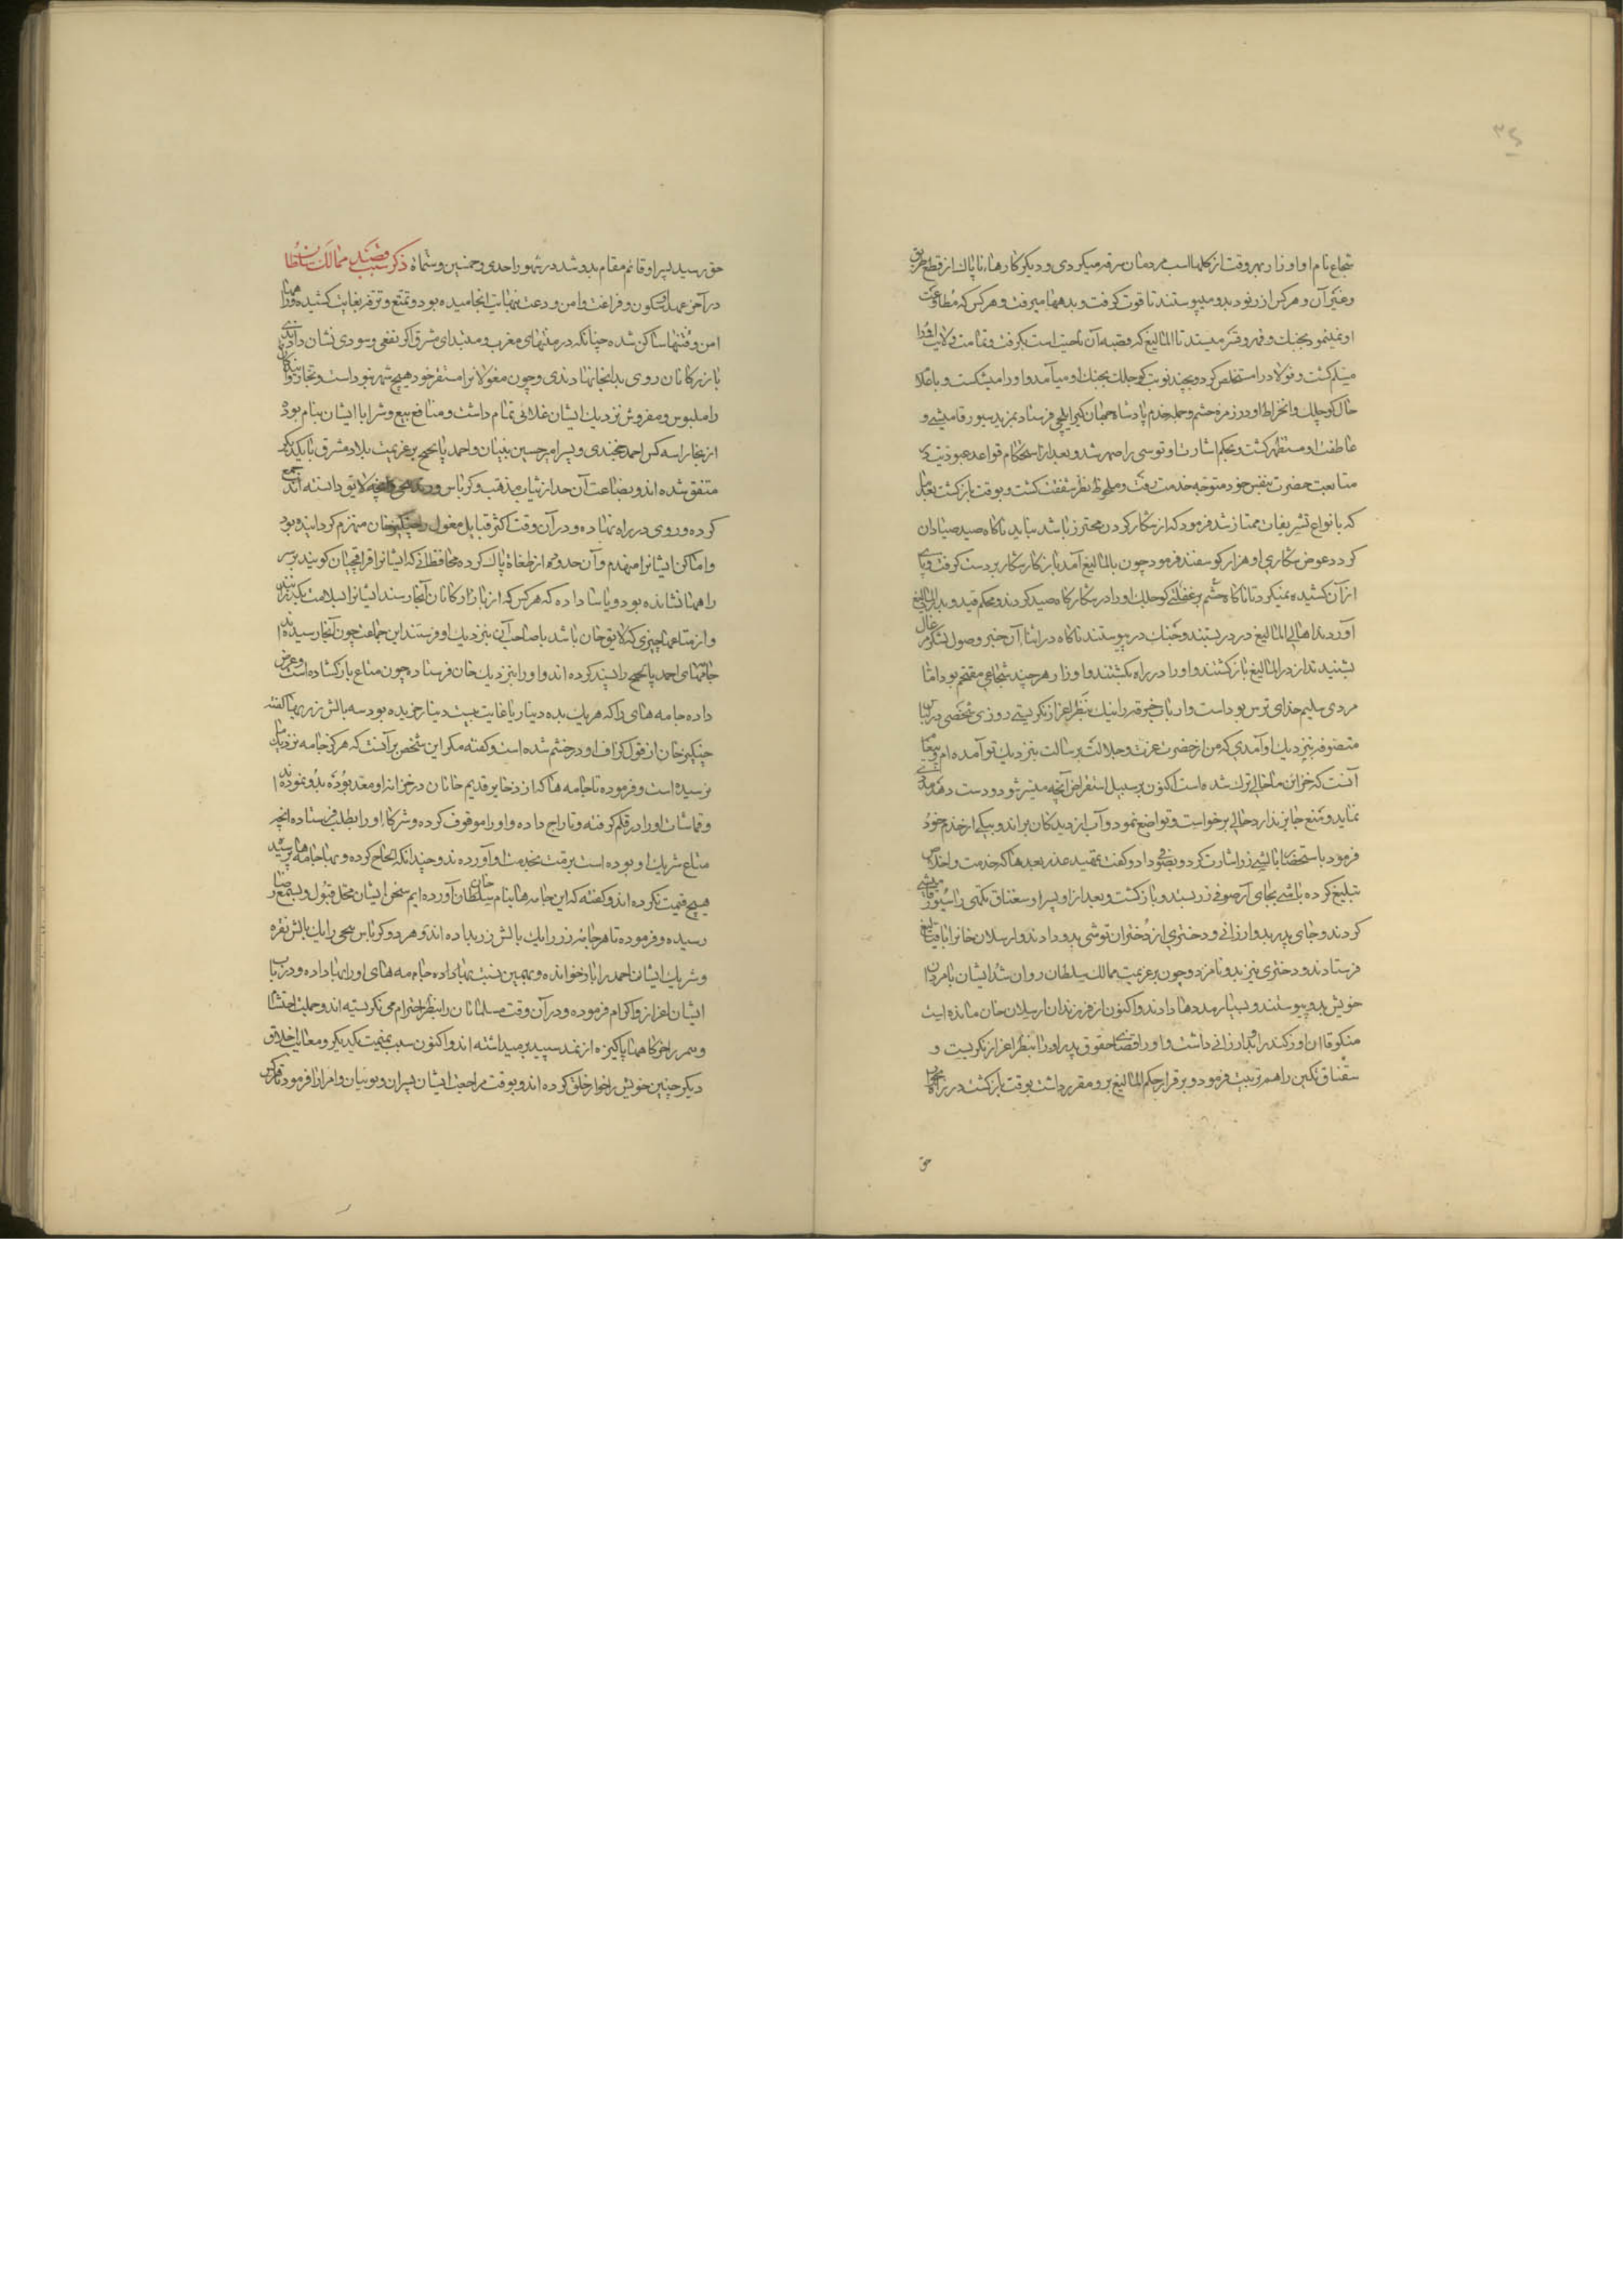 ٣٤
شجاع نام او اوزار بهر وقت از کلها اسب مردمان سرقه میکردی و دیکر کارهاء ناپاک از قطع طریق
و غیر آن و هر کس از رنود بدو می‌پیوستند تا قوت کرفت و بدهها میرفت و هر کس که مطاوعت
او نمینمود بجنک و قهر و قسر میستد تا المالیغ که قصبه آن ناحیت است بکرفت و تمامت ولایت او را
مسلم کشت و فولاد را مستخلص کرد و بچند نوبت کوجلک بجنک او میآمد و او را میشکست و باعلام
حال کوجلک و انخراط او در زمره حشم و جمله خدم پادشاه جهان کیر ایلچی فرستاد بمزید سیورقامیشی و
عاطفت او مستظهر کشت و بحکم اشارت او توسی را صهر شد و بعد از استحکام قواعد عبودیت
متابعت حضرت بنفس خود متوجه خدمت رفت و ملحوظ نظر شفقت کشت و بوقت بازکشت بعد
که بانواع تشریفات ممتاز شد فرمود که از شکار کردن محترز باشد نباید ناکاه صید صیادان
کردد عوض شکاری او هزار کوسفند فرمود چون بالمالیغ آمد باز کار شکار بردست کرفت و پای
از آن کشیده نمیکرد تا ناکاه حشم بر غفلتی کوجلک او را در شکارکاه صید کردند و محکم قید و بدر المالیغ
آوردند اهالی المالیغ در دربستند و جنک درپیوستند ناکاه در اثناء آن خبر وصول لشکر مغال
بشنیدند از در المالیغ بازکشتند و او را در راه بکشتند و اوزار هر چند شجاعی مقتحم بود اما
مردی سلیم خدای ترس بوداست و ارباب خرقه را نیک بنظر اعزاز نکریستی روزی شخصی در زی
متصوفه بنزدیک او آمدی که من از حضرت عزت و جلالت برسالت بنزدیک تو آمده‌ام و پیغام
آنست که خزاین ما حالی ترک شده است اکنون بر سبیل استقراض آنچه میسر شود و دست دهد مددی
نماید و منع جایز ندارد حالی برخواست و تواضع نمود و آب از دیدکان براند و بیکی از خدم خود
فرمود باستحضار بالشی زر اشارت کرد و بصوفی داد و کفت تمهید عذر بعدها که خدمت و اخلاص
تبلیغ کرده باشی بجای آر صوفی زر بستد و بازکشت و بعد از او پسر او سغناق تکین را سیورقامیشی
کردند و جای پدر بدو ارزانی و دختری از دختران توشی بدو دادند و ارسلان خانرا باقیالیغ
فرستادند و دختری نیز بدو نامزد و چون بر عزیمت ممالک سلطان روان شد ایشان با مردان
خویش بدو پیوستند و بسیار مددها دادند و اکنون از فرزندان ارسلان خان مانده است
منکوقاآن اوزکند را بدو ارزانی داشت و او را قضاء حقوق پدر او را بنظر اعزاز نکریست و
سقناق تکین را هم تربیت فرمود و برقرار حکم المالیغ برو مقرر داشت بوقت بازکشت در راه بجوار
حق
حق رسید پسر او قائم مقام بدو شد در شهور احدی و خمسین و ستمایه ذکر سبب قصد ممالک سلطان
در آخر عهد او سکون و فراغت و امن و دعت بنهایت انجامیده بود و تمتع و ترفه بغایت کشیده و راهها
امن و فتنها ساکن شده چنانکه در منتهای مغرب و مبتدای مشرق اکر نفعی و سودی نشان دادندی
بازرکانان روی بدانجا نهادندی و چون مغولانرا مستقر خود هیچ شهر نبوداست و تجار و آیندکان
را ملبوس و مفروش نزدیک ایشان غلائی تمام داشت و منافع بیع و شرا با ایشان بنام بوده
از بخارا سه کس احمد خجندی و پسر امیر حسین بنینان و احمد بالحیح بر عزیمت بلاد مشرق با یکدیکر
متفق شده‌اند و بضاعت آن حد از ثیاب مذهب و کرباس و زندنیجی و آنچه لایق دانسته‌اند جمع
کرده و روی در راه نهاده و در آن وقت اکثر قبایل مغول را چنکیزخان منهزم کردانیده بود
و اماکن ایشانرا منهدم و آن حدود همه از طغاة پاک کرده محافظانی که ایشانرا قراقچیان کویند بر سر
راهها نشانده بود و یاسا داده که هر کس که از بازارکانان آنجا رسند ایشانرا بسلامت بکذرانند
و از متاعها چیزی که لایق خان باشد با صاحب آن بنزدیک او فرستند این جماعت چون آنجا رسیده‌اند
جامهای احمد بالحیح را پسند کرده‌اند و او را بنزدیک خان فرستاده چون متاع باز کشاده است و عرض
داده جامه‌های را که هر یک بده دینار یا غایت بیست دینار خریده بود سه بالش زر بها کفته
چنکیزخان از قول کزاف او در خشم شده است و کفته مکر این شخص بر آنست که هرکز جامه نزدیک ما
نرسیده است و فرموده تا جامه‌ها که از ذخایر قدیم خانان در خزانه او معد بوده بدو نموده‌اند
و قماشات او را در قلم کرفته و تاراج داده و او را موقوف کرده و شرکاء او را بطلب فرستاده آنچه
متاع شریک او بوده است برمت بخدمت او آورده‌اند و چندانکه الحاح کرده و بها جامه‌ها پرسیده
هیچ قیمت نکرده‌اند و کفته که این جامه‌ها بنام سلطان آورده‌ایم سخن ایشان محل قبول و بسمع رضا
رسیده و فرموده تا هر جامه زر را یک بالش زر بداده‌اند و هر دو کرباس و زندنیجی را یک بالش نقره
و شریک ایشان احمد را باز خوانده و بهمین نسبت بها داده جامه‌های او را بها داده و در باب
ایشان اعزاز و اکرام فرموده و در آن وقت مسلمانان را بنظر احترام می‌نکریسته‌اند و جهت احتشام
و تبرک خرکاهها پاکیزه از نمد سپید بر میداشته‌اند و اکنون سبب تهمیت یکدیکر و معایب اخلاق
دیکر چنین خویش را خوار خلق کرده‌اند و بوقت مراجعت ایشان پسران و نوینان و امرا را فرمود تا هر کس